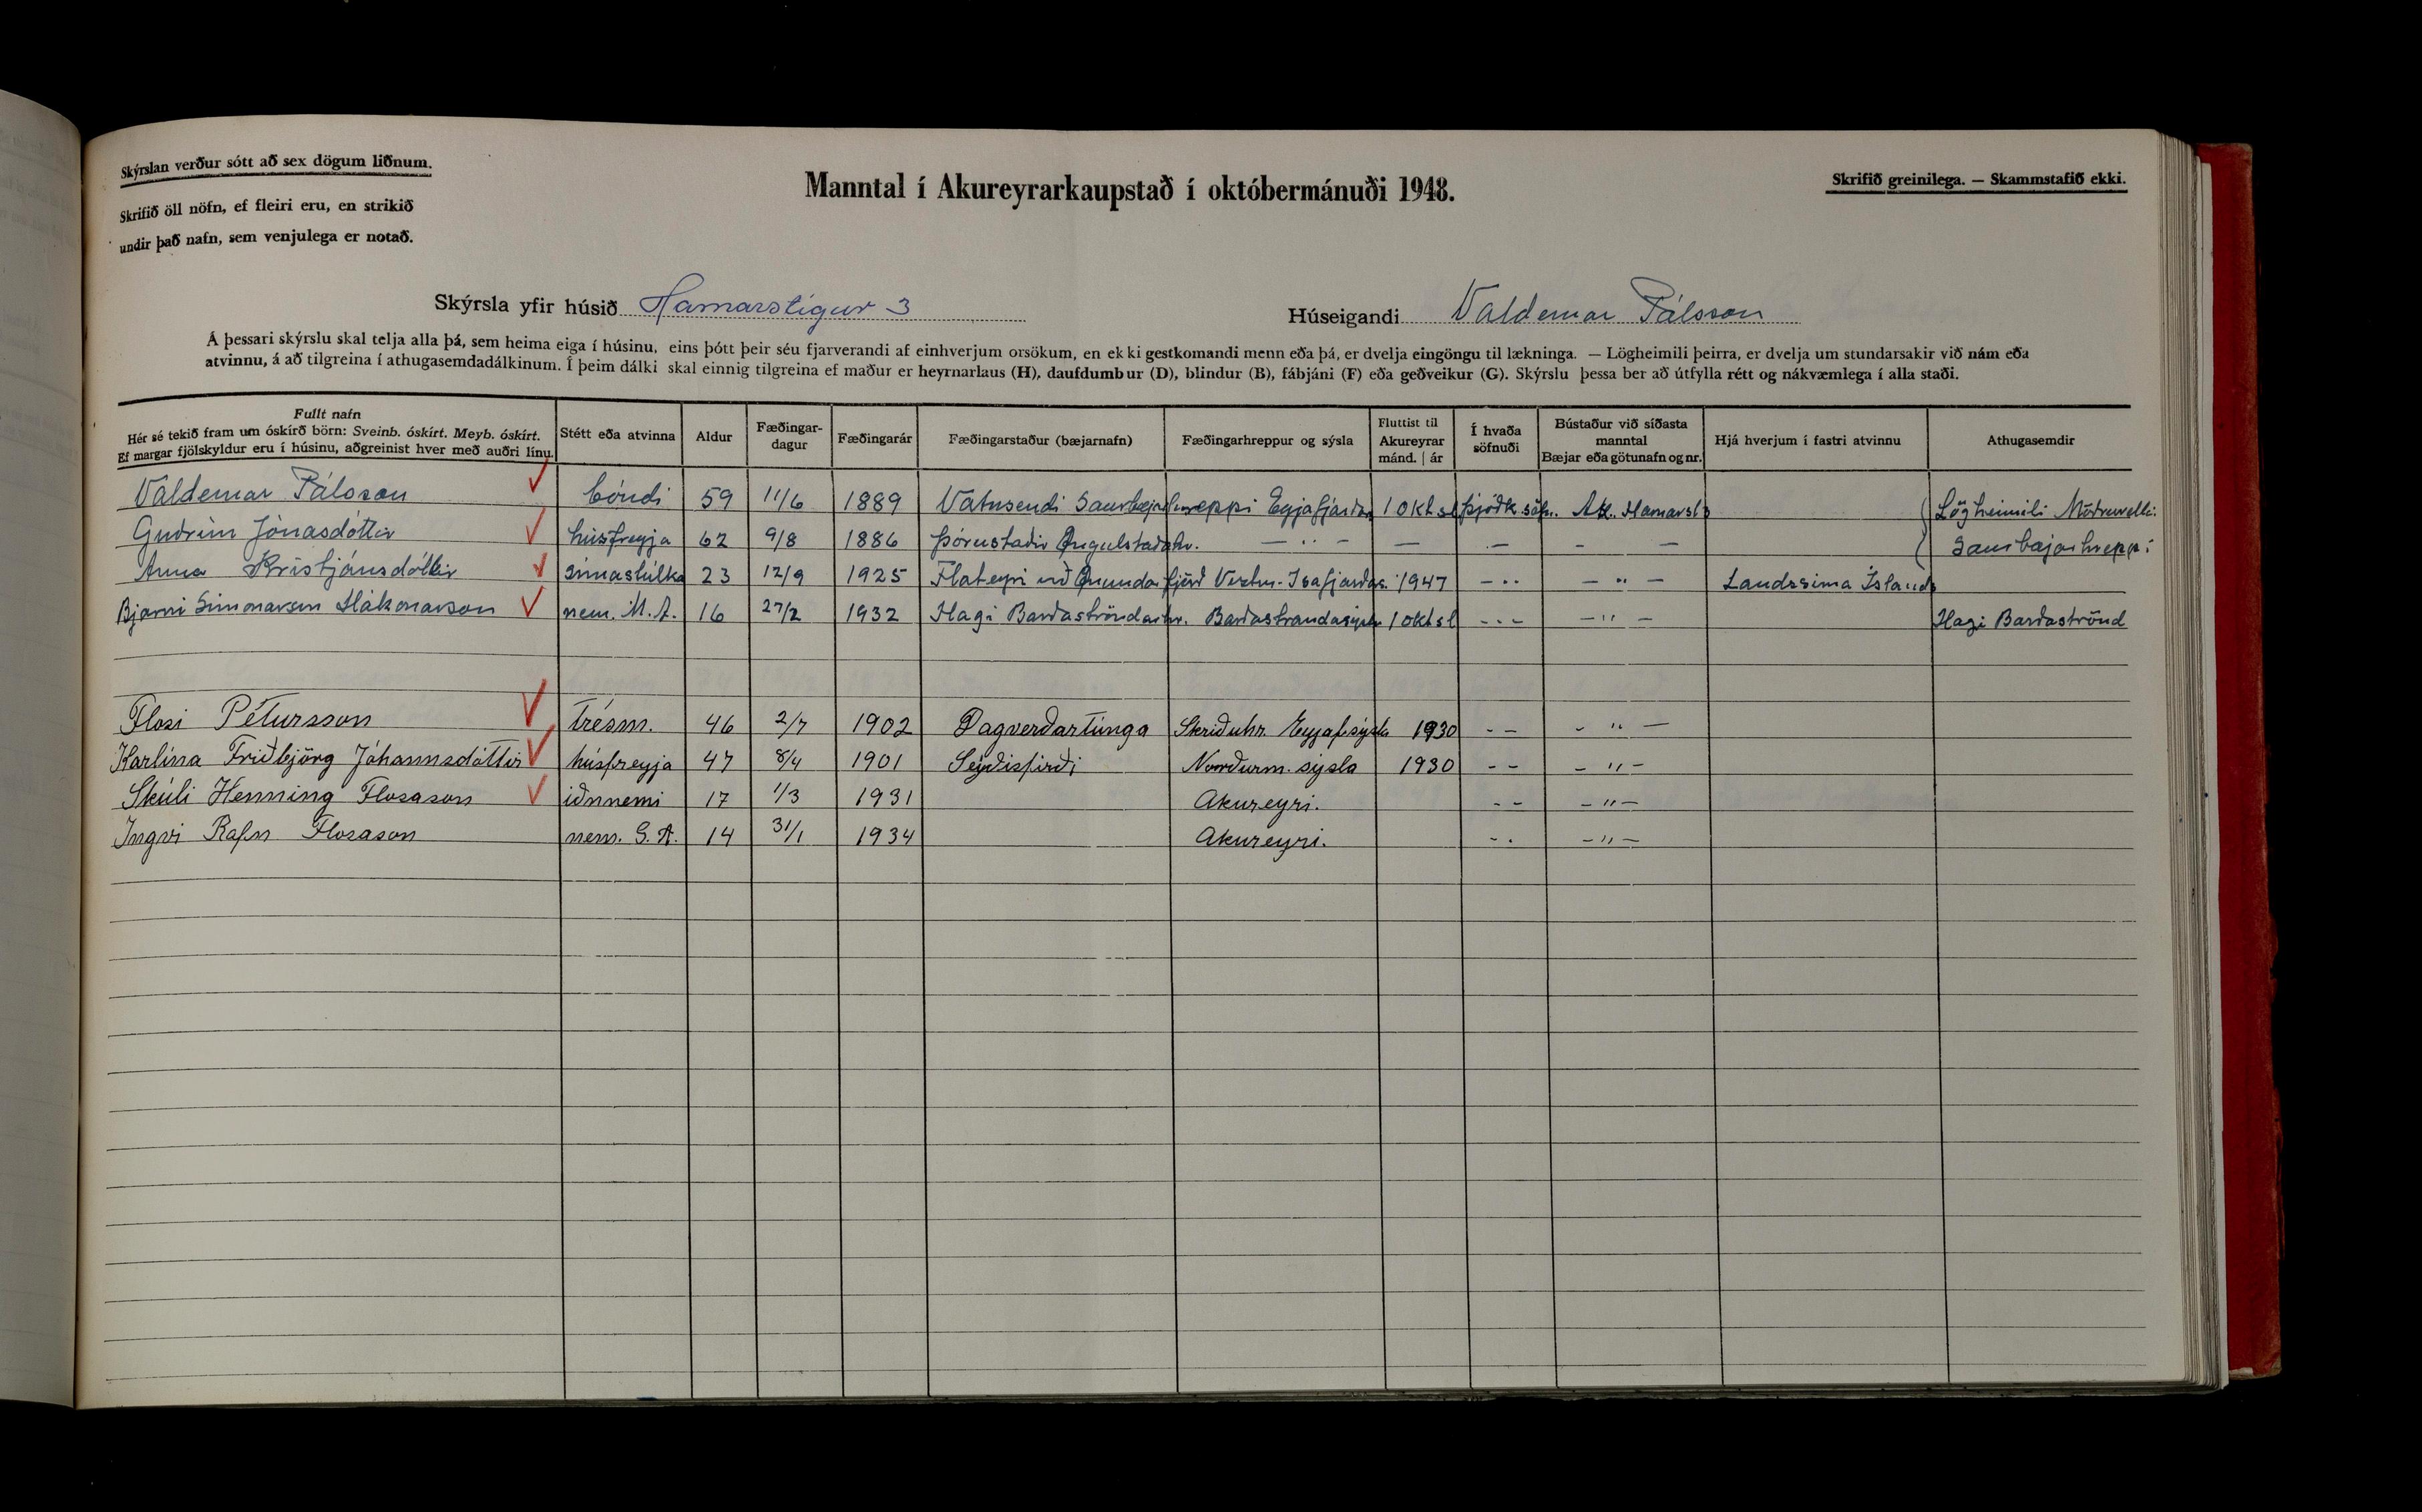 Skýrslan verður sótt að sex dögum liðnum.
Skrifið öll nöfn, ef fleiri eru, en strikið
undir það nafn, sem venjulega er notað.
Manntal í Akureyrarkaupstað í októbermánuði 1948.
Skrifið greinilega. — Skammstafið ekki.
Skýrsla yfir húsið Hamarstígur 3
Húseigandi Valdemar Pálsson
Á þessari skýrslu skal telja alla þá, sem heima eiga í húsinu, eins þótt þeir séu fjarverandi af einhverjum orsökum, en ekki gestkomandi menn eða þá, er dvelja eingöngu til lækninga. — Lögheimili þeirra, er dvelja um stundarsakir við nám eða
atvinnu, á að tilgreina í athugasemdadálkinum. Í þeim dálki skal einnig tilgreina ef maður er heyrnarlaus (H), daufdumbur (D), blindur (B), fábjáni (F) eða geðveikur (G). Skýrslu þessa ber að útfylla rétt og nákvæmlega í alla staði.
Fullt nafn
Hér sé tekið fram um óskírð börn: Sveinb. óskírt. Meyb. óskírt.
Ef margar fjölskyldur eru í húsinu, aðgreinist hver með auðri línu.
Stétt eða atvinna
Aldur
Fæðingar-
dagur
Fæðingarár
Fæðingarstaður (bæjarnafn)
Fæðingarhreppur og sýsla
Fluttist til
Akureyrar
mánd. | ár
Í hvaða
söfnuði
Bústaður við síðasta
manntal
Bæjar eða götunafn og nr.
Hjá hverjum í fastri atvinnu
Athugasemdir
Valdemar Pálsson bóndi 59 11/6 1889 Vatnsendi Saurbæjarhreppi Eyjafjarðar 1 okt sl þjóðk.söfn. Ak. Hamarst 3 Lögheimili Möðruvellir
Guðrún Jónasdóttir húsfreyja 62 9/8 1886 Þórustaðir Öngulstaðahr. — " — — — - — Saurbæjarhreppi
Anna Kristjánsdóttir símastúlka 23 12/9 1925 Flateyri við Önundarfjörð Vestur-Ísafjarðas. 1947 - " - " - Landssíma Íslands
Bjarni Símonarson Hákonarson nem. M.A. 16 27/2 1932 Hagi Barðastrandarhr. Barðastrandasýslu 1 okt sl - " - " - Hagi Barðaströnd
Flosi Pétursson trésm. 46 2/7 1902 Dagverðartunga Skriðuhr. Eyjaf.sýsla 1930 - - - " -
Karlína Friðbjörg Jóhannsdóttir húsfreyja 47 8/4 1901 Seyðisfirði Norðurm. sýsla 1930 - - - " -
Skúli Henning Flosason iðnnemi 17 1/3 1931 Akureyri. - - - " -
Ingvi Rafn Flosason nem. G.A. 14 31/1 1934 Akureyri. - - - " -